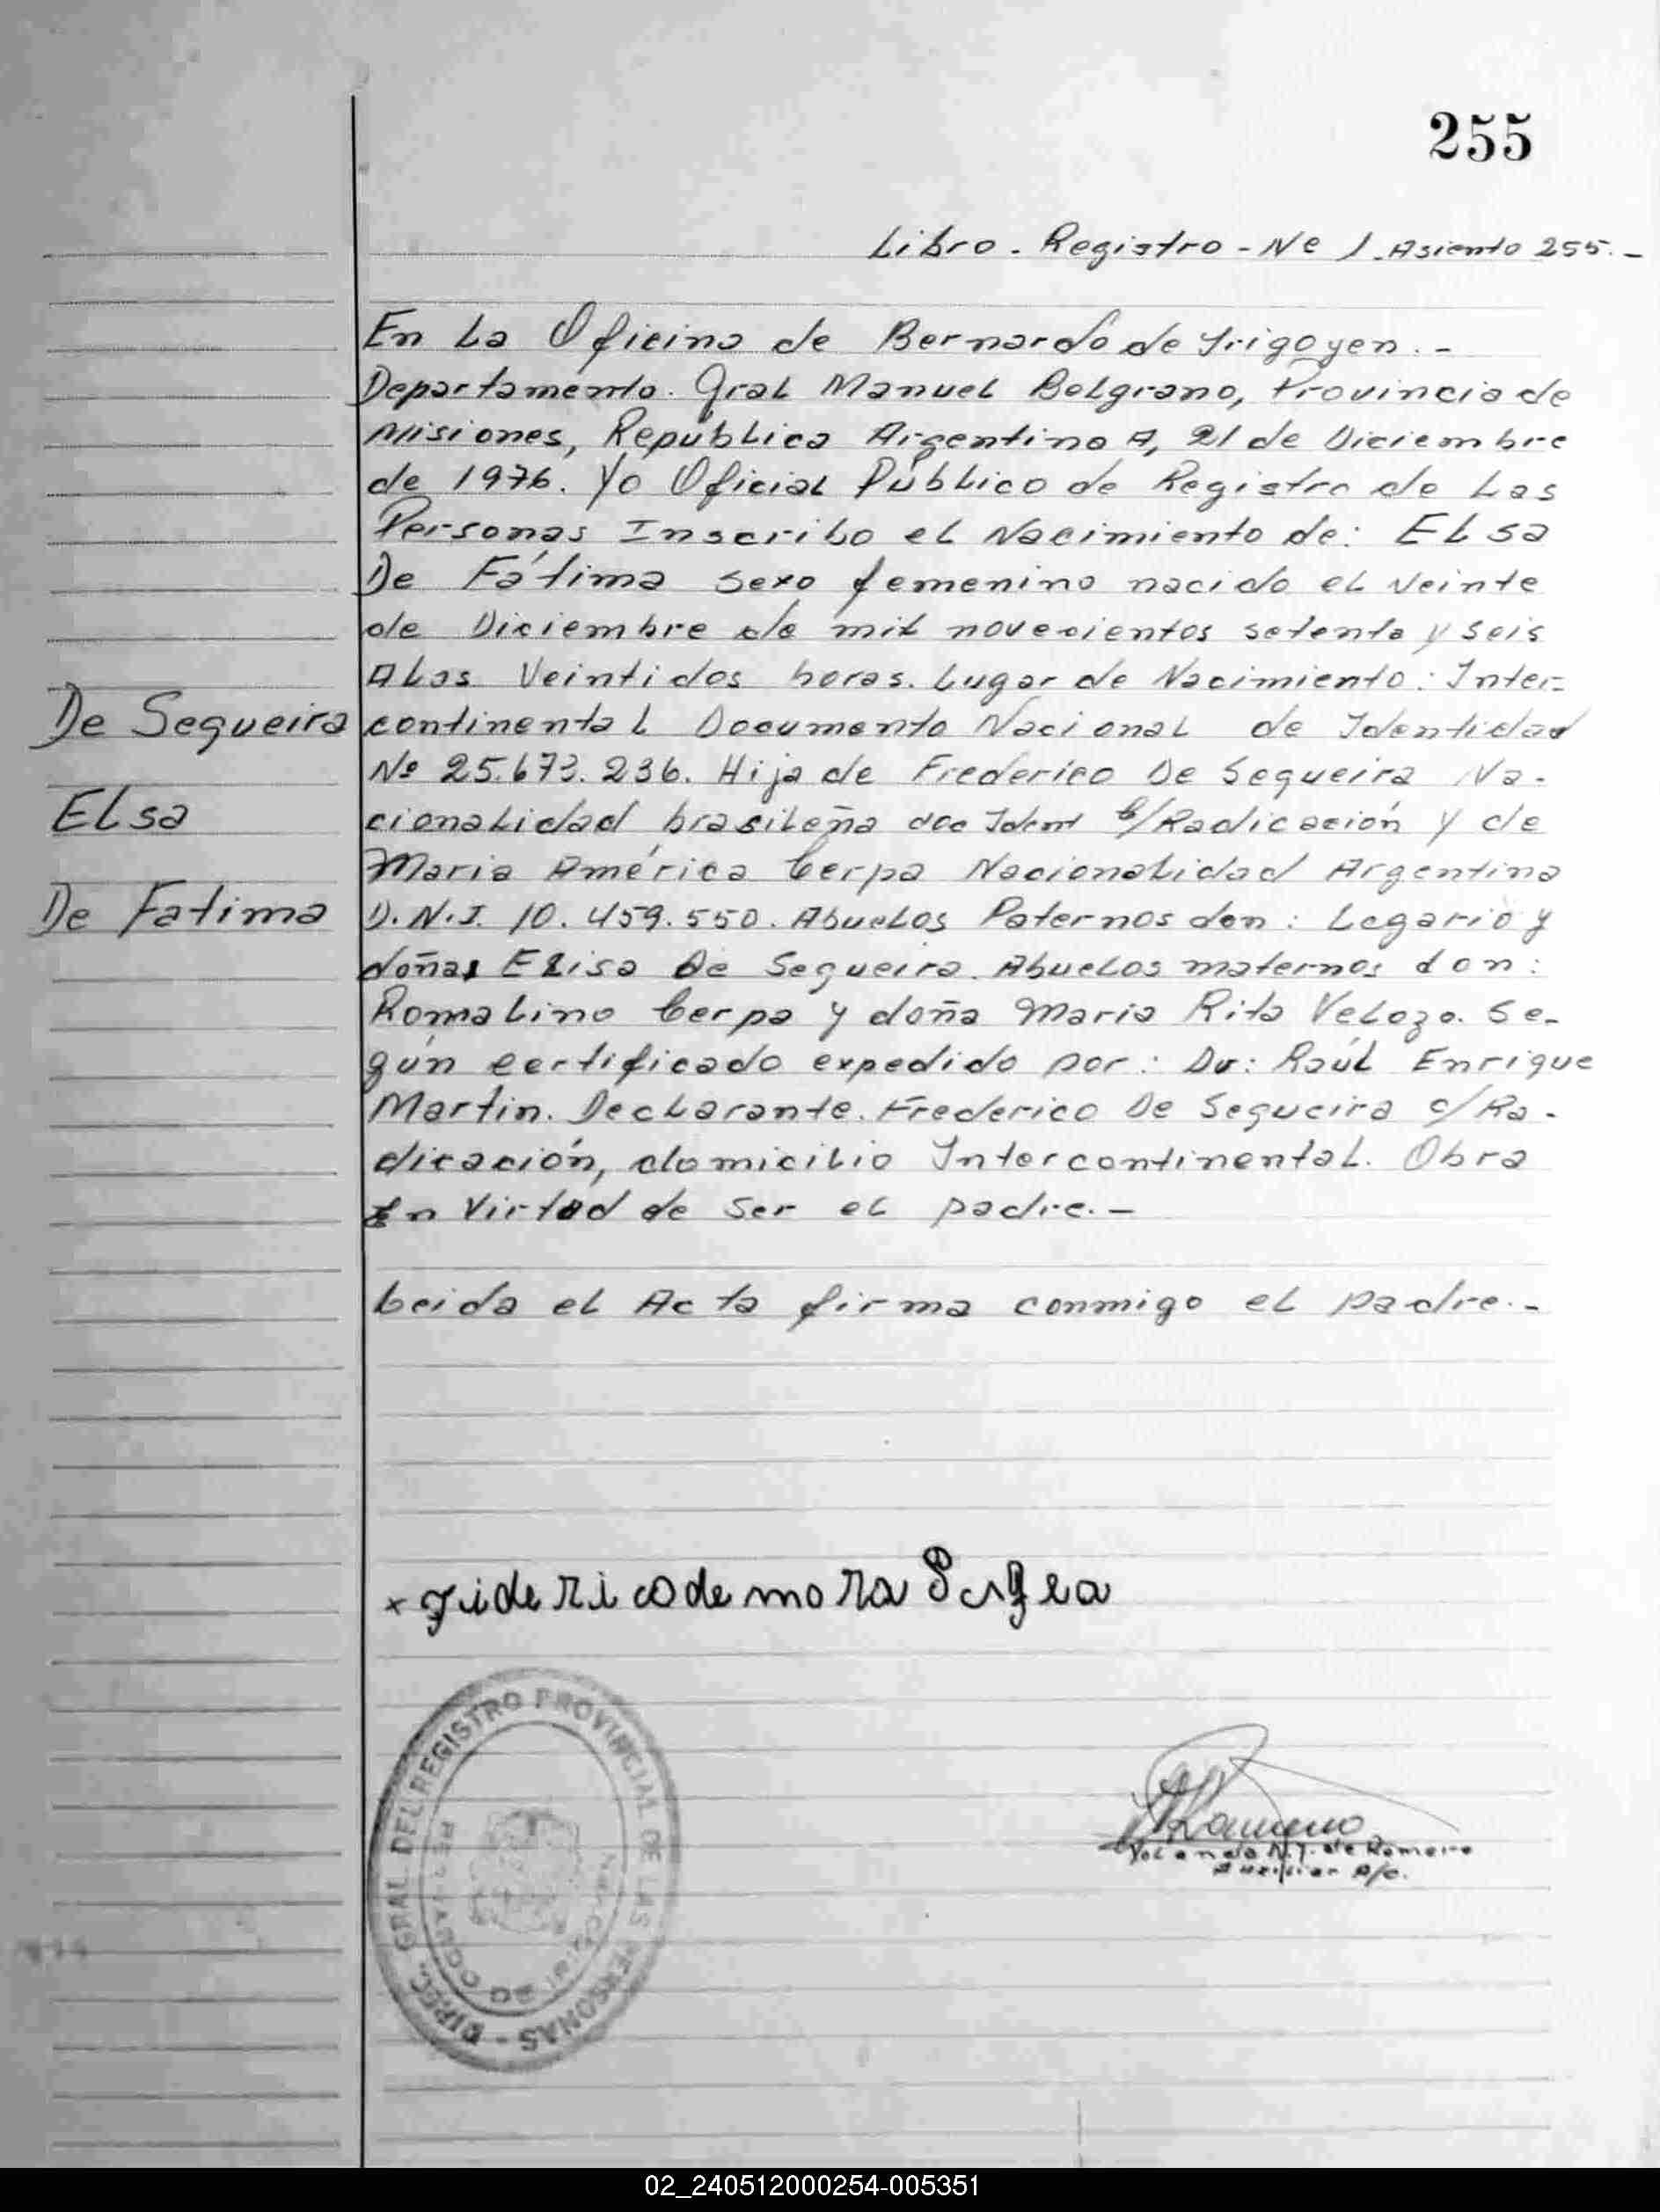 255
Libro - Registro - Nº 1. Asiento 255.-
En La Oficina de Bernardo de Yrigoyen.-
Departamento. Gral Manuel Belgrano, Provincia de
Misiones, República Argentina A, 21 de Diciembre
de 1976. Yo Oficial Público de Registro de Las
Personas Inscribo el Nacimiento de: ELsa
De Fátima sexo femenino nacido el veinte
de Diciembre de mil novecientos setenta y seis
A Las Veintidos horas. Lugar de Nacimiento: Inter=
De Sequeira
continental Documento Nacional de Identidad
Nº 25.673.236. Hija de Frederico De Sequeira Na-
ELsa
cionalidad brasileña doc Ident C/Radicación y de
Maria América Cerpa Nacionalidad Argentina
De Fatima
D.N.I. 10.459.550. Abuelos Paternos don: Legario y
doña Elisa De Sequeira. Abuelos maternos don:
Romalino Cerpa y doña Maria Rita Velozo. Se-
gún certificado expedido por: Dr: Raúl Enrique
Martin. Declarante. Frederico De Sequeira c/Ra-
dicación, domicilio Intercontinental. Obra
En Virtud de ser el padre.-
Leida el Acta firma conmigo el padre.-
x fiderico de mora
DIREC. GRAL. DEL REGISTRO PROVINCIAL DE LAS PERSONAS -
Yolanda N.T. de Romero
Auxiliar A/c.
02_240512000254-005351